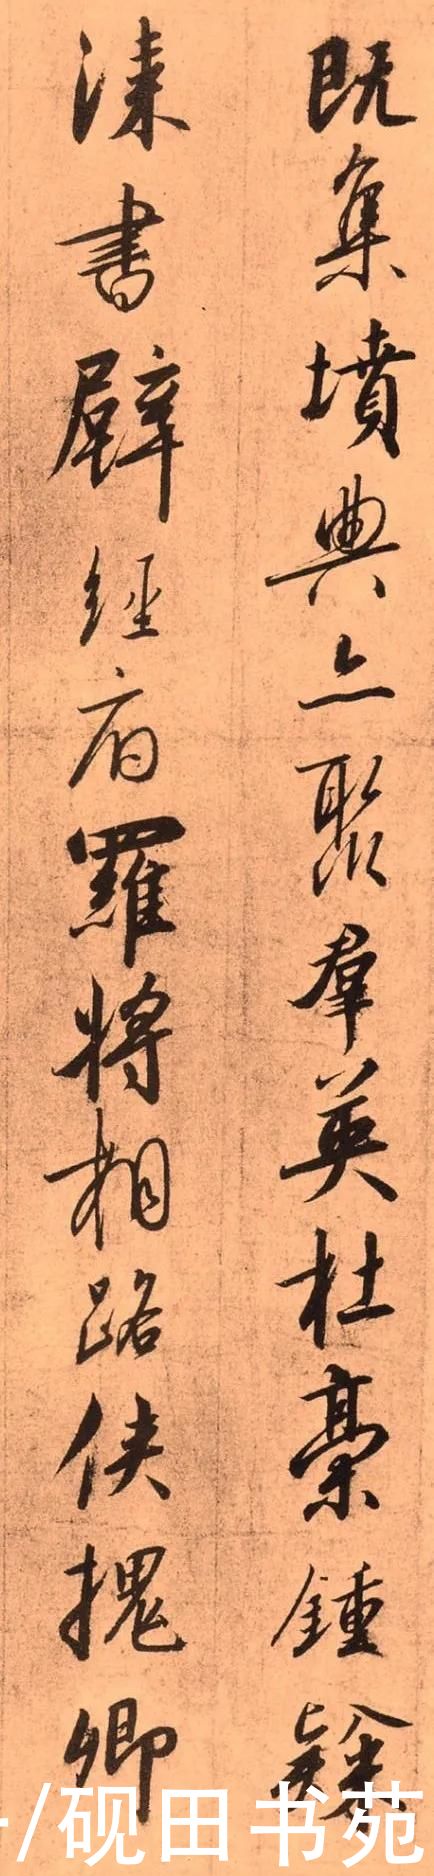 既集墳典亦聚羣英杜稾鍾隸
漆書壁經府羅將相路俠槐卿
/砚田书苑